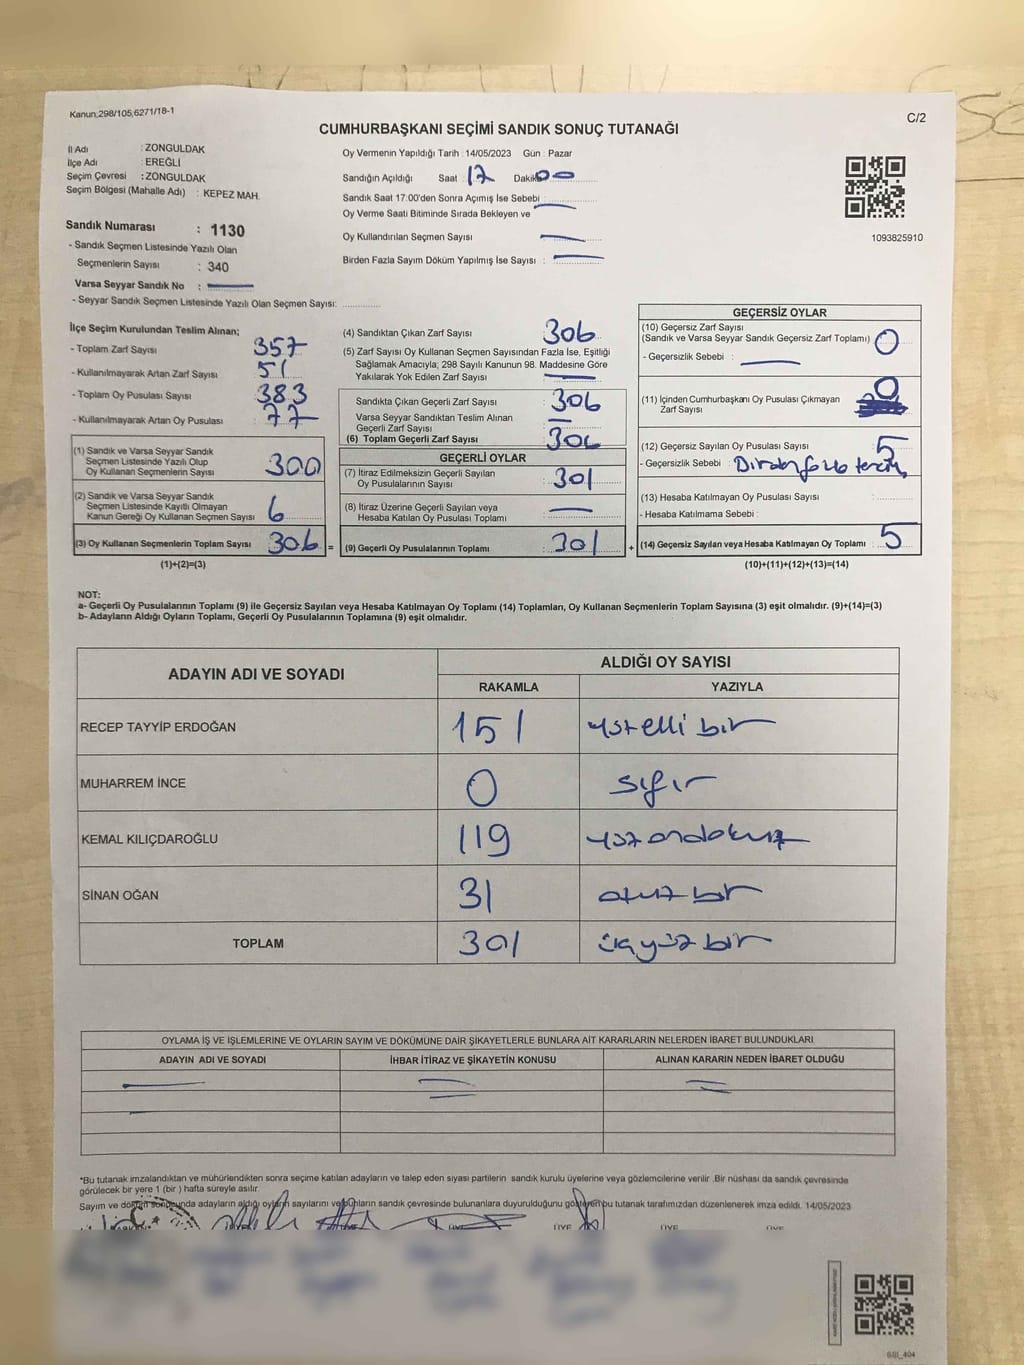 Kanun;298/105,6271/18-1
C/2
CUMHURBAŞKANI SEÇİMİ SANDIK SONUÇ TUTANAĞI
İl Adı : ZONGULDAK
İlçe Adı : EREĞLİ
Seçim Çevresi : ZONGULDAK
Seçim Bölgesi (Mahalle Adı) : KEPEZ MAH.
Oy Vermenin Yapıldığı Tarih : 14/05/2023 Gün : Pazar
Sandığın Açıldığı Saat 17 Dakika 00
Sandık Saat 17:00'den Sonra Açımış İse Sebebi
Oy Verme Saati Bitiminde Sırada Bekleyen ve
Oy Kullandırılan Seçmen Sayısı
Birden Fazla Sayım Döküm Yapılmış İse Sayısı :
1093825910
Sandık Numarası : 1130
- Sandık Seçmen Listesinde Yazılı Olan
Seçmenlerin Sayısı : 340
Varsa Seyyar Sandık No :
- Seyyar Sandık Seçmen Listesinde Yazılı Olan Seçmen Sayısı:
İlçe Seçim Kurulundan Teslim Alınan;
- Toplam Zarf Sayısı : 357
- Kullanılmayarak Artan Zarf Sayısı : 51
- Toplam Oy Pusulası Sayısı : 383
- Kullanılmayarak Artan Oy Pusulası : 77
(1) Sandık ve Varsa Seyyar Sandık
Seçmen Listesinde Yazılı Olup
Oy Kullanan Seçmenlerin Sayısı 300
(2) Sandık ve Varsa Seyyar Sandık
Seçmen Listesinde Kayıtlı Olmayan
Kanun Gereği Oy Kullanan Seçmen Sayısı 6
(3) Oy Kullanan Seçmenlerin Toplam Sayısı 306 =
(1)+(2)=(3)
(4) Sandıktan Çıkan Zarf Sayısı : 306
(5) Zarf Sayısı Oy Kullanan Seçmen Sayısından Fazla İse, Eşitliği
Sağlamak Amacıyla; 298 Sayılı Kanunun 98. Maddesine Göre
Yakılarak Yok Edilen Zarf Sayısı :
Sandıkta Çıkan Geçerli Zarf Sayısı : 306
Varsa Seyyar Sandıktan Teslim Alınan
Geçerli Zarf Sayısı :
(6) Toplam Geçerli Zarf Sayısı : 306
GEÇERLİ OYLAR
(7) İtiraz Edilmeksizin Geçerli Sayılan
Oy Pusulalarının Sayısı : 301
(8) İtiraz Üzerine Geçerli Sayılan veya
Hesaba Katılan Oy Pusulası Toplamı :
(9) Geçerli Oy Pusulalarının Toplamı : 301 +
GEÇERSİZ OYLAR
(10) Geçersiz Zarf Sayısı
(Sandık ve Varsa Seyyar Sandık Geçersiz Zarf Toplamı) : 0
- Geçersizlik Sebebi :
(11) İçinden Cumhurbaşkanı Oy Pusulası Çıkmayan
Zarf Sayısı 0
(12) Geçersiz Sayılan Oy Pusulası Sayısı : 5
- Geçersizlik Sebebi : Birden fazla tercih
(13) Hesaba Katılmayan Oy Pusulası Sayısı :
- Hesaba Katılmama Sebebi :
(14) Geçersiz Sayılan veya Hesaba Katılmayan Oy Toplamı : 5
(10)+(11)+(12)+(13)=(14)
NOT:
a- Geçerli Oy Pusulalarının Toplamı (9) ile Geçersiz Sayılan veya Hesaba Katılmayan Oy Toplamı (14) Toplamları, Oy Kullanan Seçmenlerin Toplam Sayısına (3) eşit olmalıdır. (9)+(14)=(3)
b- Adayların Aldığı Oyların Toplamı, Geçerli Oy Pusulalarının Toplamına (9) eşit olmalıdır.
ADAYIN ADI VE SOYADI
ALDIĞI OY SAYISI
RAKAMLA YAZIYLA
RECEP TAYYİP ERDOĞAN 151 yüzelli bir
MUHARREM İNCE 0 sıfır
KEMAL KILIÇDAROĞLU 119 yüz ondokuz
SİNAN OĞAN 31 otuz bir
TOPLAM 301 üçyüz bir
OYLAMA İŞ VE İŞLEMLERİNE VE OYLARIN SAYIM VE DÖKÜMÜNE DAİR ŞİKAYETLERLE BUNLARA AİT KARARLARIN NELERDEN İBARET BULUNDUKLARI
ADAYIN ADI VE SOYADI İHBAR İTİRAZ VE ŞİKAYETİN KONUSU ALINAN KARARIN NEDEN İBARET OLDUĞU
*Bu tutanak imzalandıktan ve mühürlendikten sonra seçime katılan adayların ve talep eden siyasi partilerin sandık kurulu üyelerine veya gözlemcilerine verilir .Bir nüshası da sandık çevresinde
görülecek bir yere 1 (bir ) hafta süreyle asılır.
Sayım ve döküm sonucunda adayların aldığı oyların sayılarını ve bunların sandık çevresinde bulunanlara duyurulduğunu gösteren bu tutanak tarafımızdan düzenlenerek imza edildi. 14/05/2023
ÜYE ÜYE ÜYE